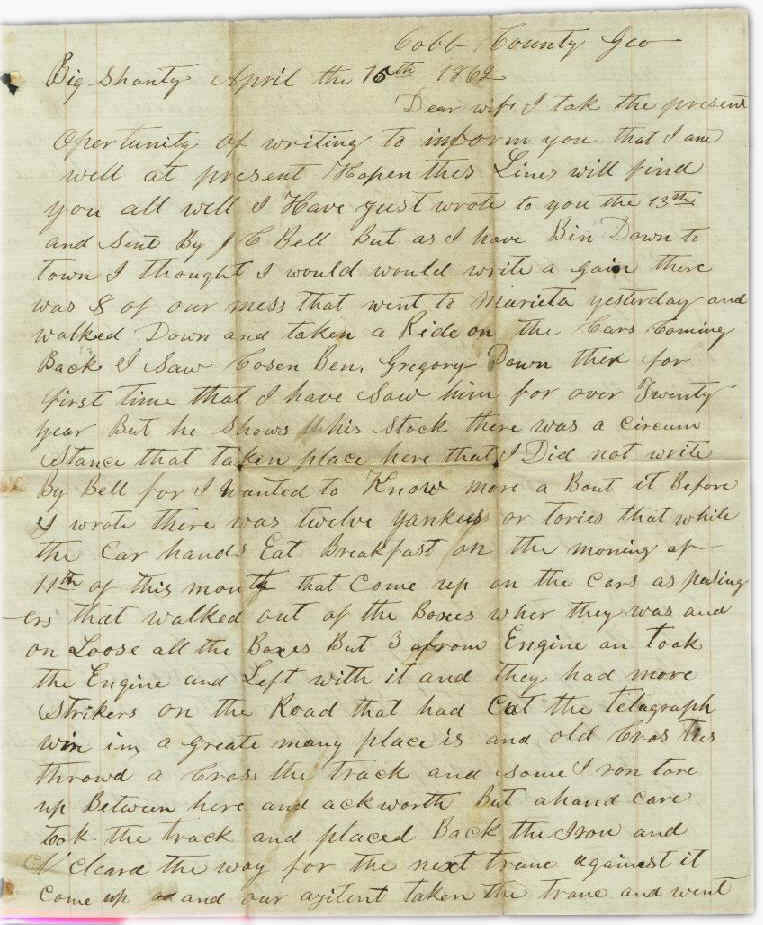 Cobb County Geo
Big Shanty April the 15th 1862
Dear wife I tak the present
Opertunity of writing to inform you that I am
well at present Hopen thes Lines will find
you all well I Have just wrote to you the 13th
and Sent By J C Bell But as I have Bin Down to
town I thought I would would write a gain there
was 8 of our mess that went to Marieta yesterday and
walked Down and taken a Ride on the Cars Coming
Back I Saw Cosen Ben. Gregory Down ther for
first time that I have Saw him for over Twenty
year But he Shows his Stock there was a Circum
Stance that taken place here that I Did not write
By Bell for I wanted to Know more a Bout it Before
I wrote there was twelve yankees or tories that while
the Car hands Eat Breakfast on the morning of
11th of this month that Come up on the Cars as pasing
ers that walked out of the Boxes wher they was and
on Loose all the Boxes But 3 from Engine an Took
the Engine and Left with it and they had more
Strikers on the Road that had Cut the telagraph
wir in a greate many place is and old Cros ties
throwd a Cros the track and some I ron tore
up Between here and ackworth But a hand care
took the track and placed Back the Iron and
Cleard the way for the next trane against it
Come up and our agitent taken the trane and went